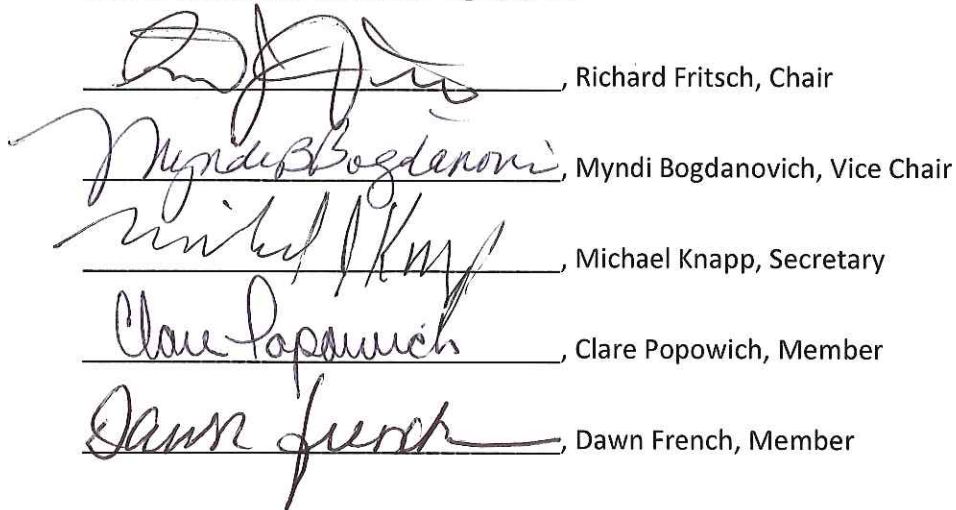 , Richard Fritsch, Chair
Myndi B Bogdanovi, Myndi Bogdanovich, Vice Chair
Michael J Knapp, Michael Knapp, Secretary
Clare Popowich, Clare Popowich, Member
Dawn French, Dawn French, Member